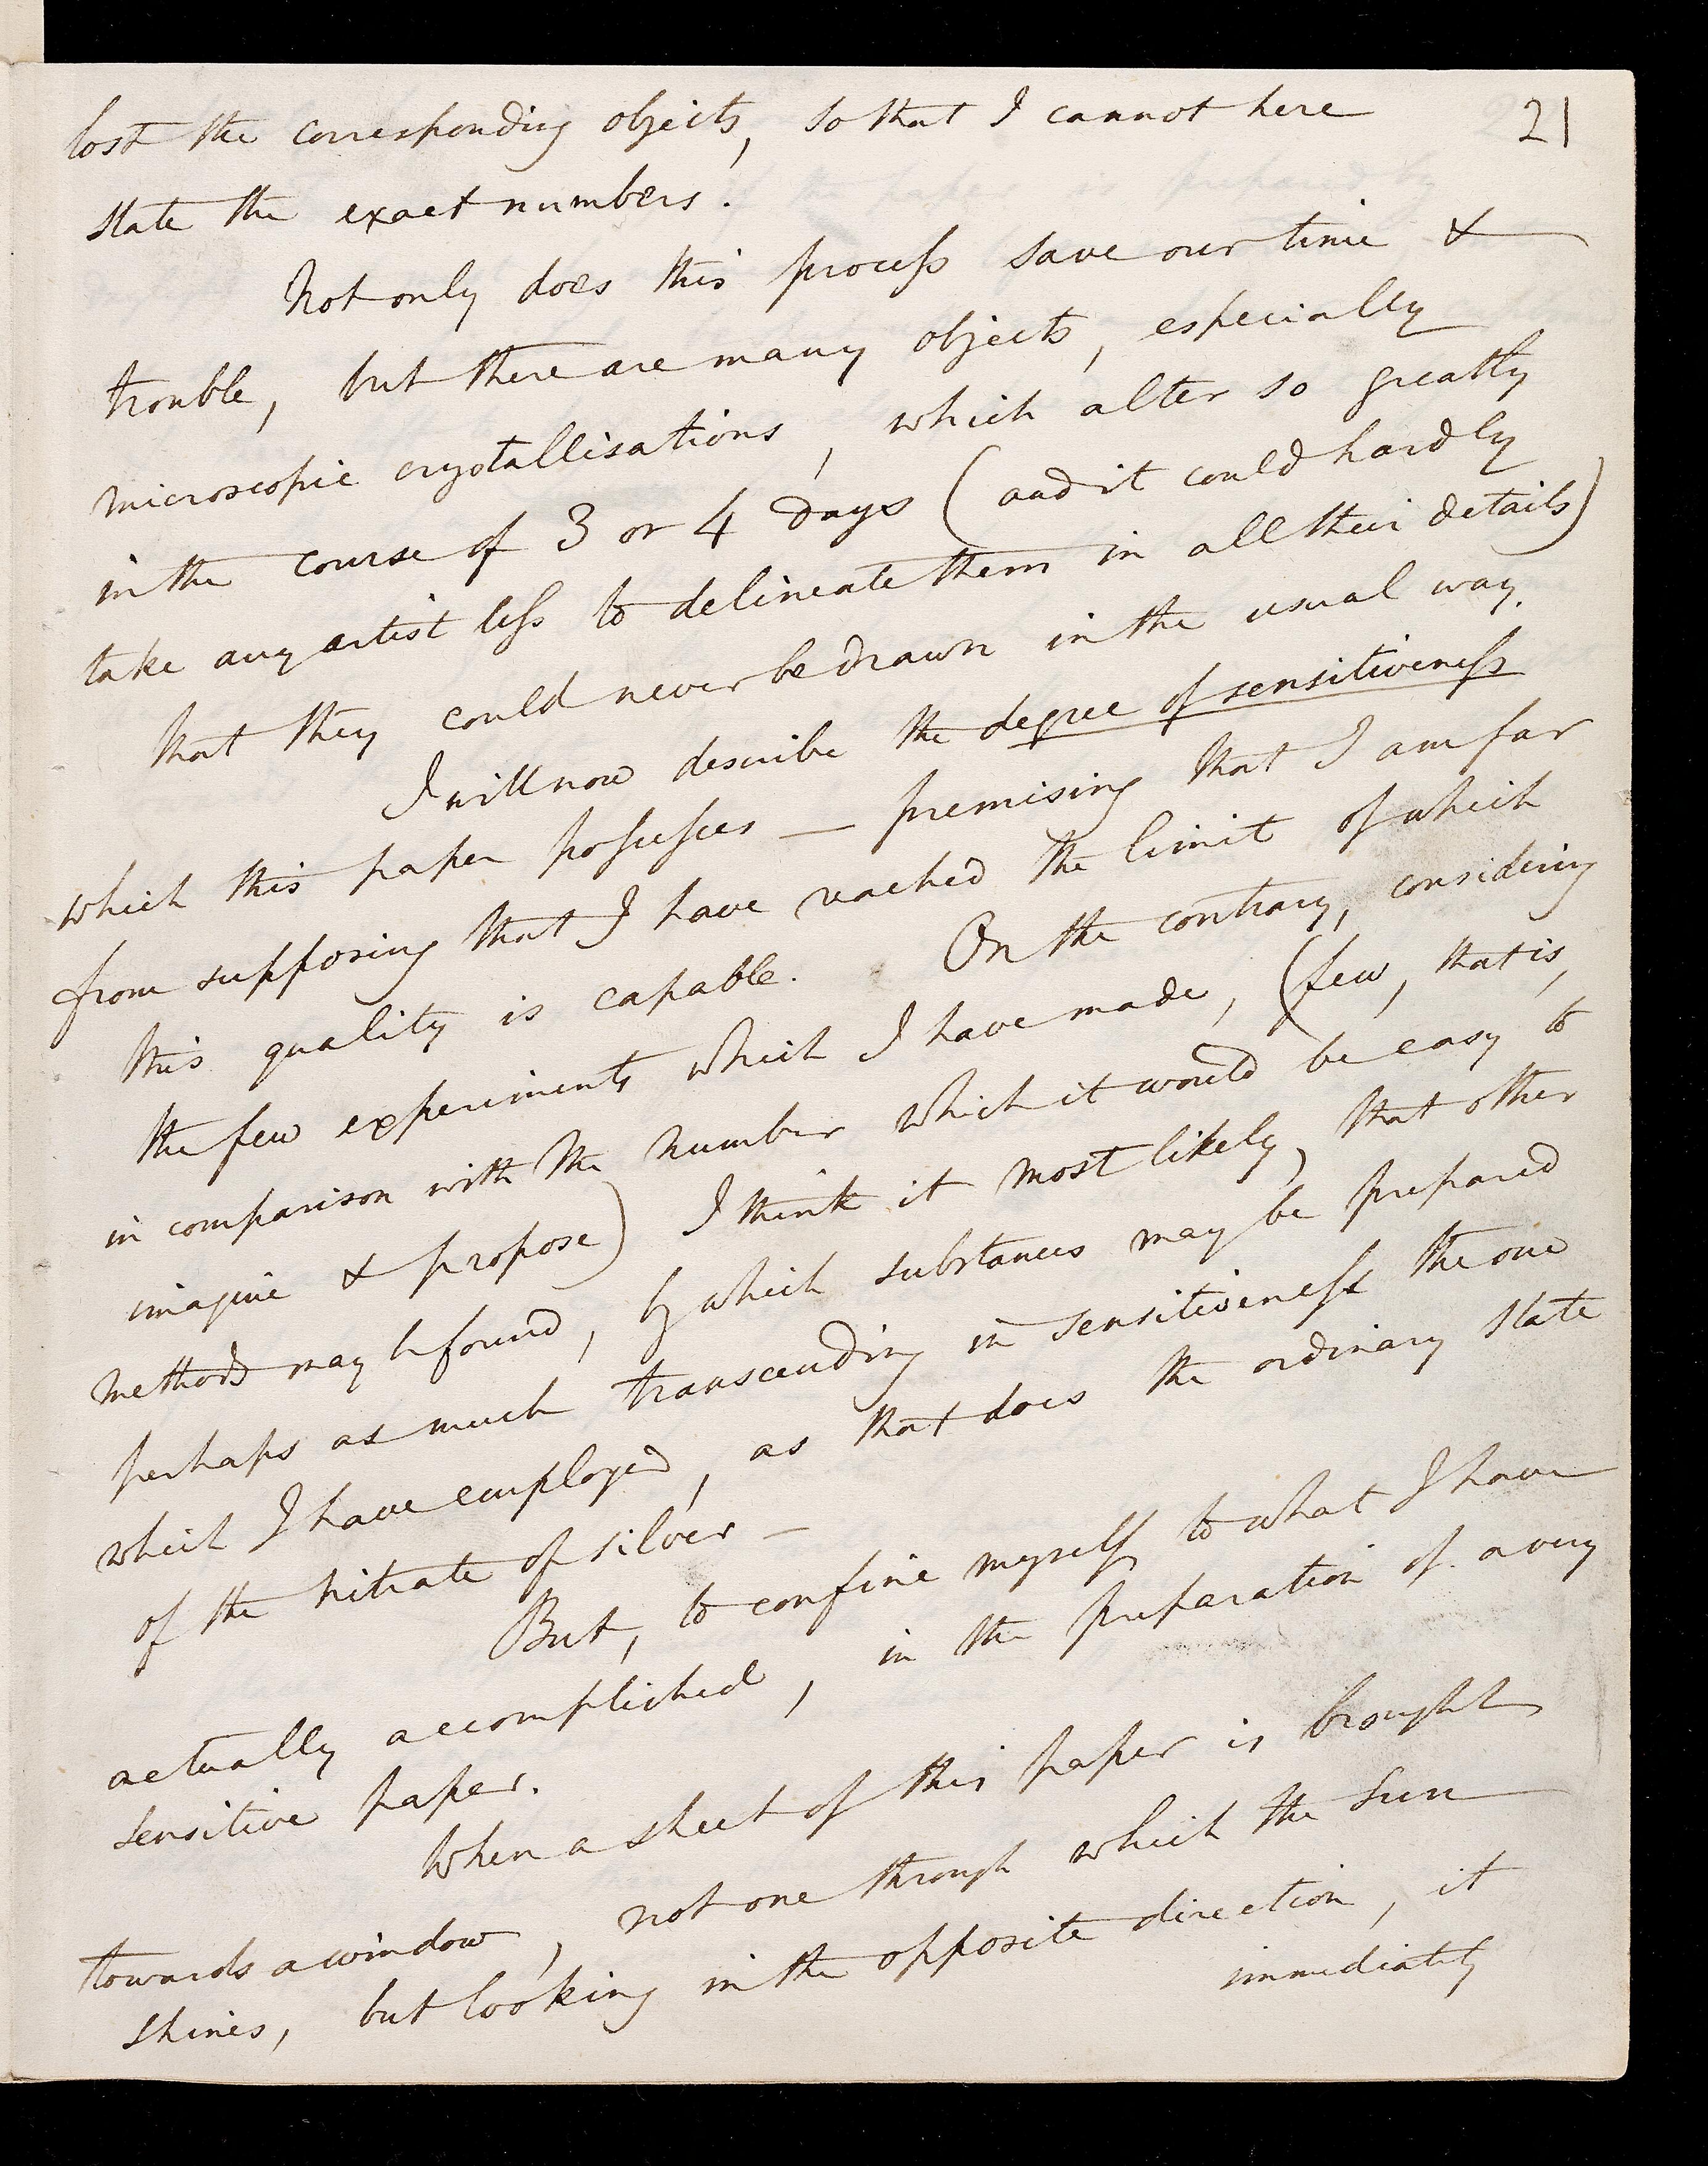 lost the corresponding objects, so that I cannot here 21
state the exact numbers.
Not only does this process save our time &
trouble, but there are many objects, especially
microscopic crystallisations, which alter so greatly
in the course of 3 or 4 days (and it could hardly
take any artist less to delineate them in all their details)
that they could never be drawn in the usual way.
I will now describe the degree of sensitiveness
which this paper possesses — premising that I am far
from supposing that I have reached the limit of which
this quality is capable. On the contrary, considering
the few experiments which I have made, (few, that is,
in comparison with the number which it would be easy to
imagine & propose) I think it most likely, that other
methods may be found, by which substances may be prepared
perhaps as much transcending in sensitiveness the one
which I have employed, as that does the ordinary state
of the nitrate of silver —
But, to confine myself to what I have
actually accomplished, in the preparation of a very
sensitive paper.
When a sheet of this paper is brought
towards a window, not one through which the sun
shines, but looking in the opposite direction, it
immediately